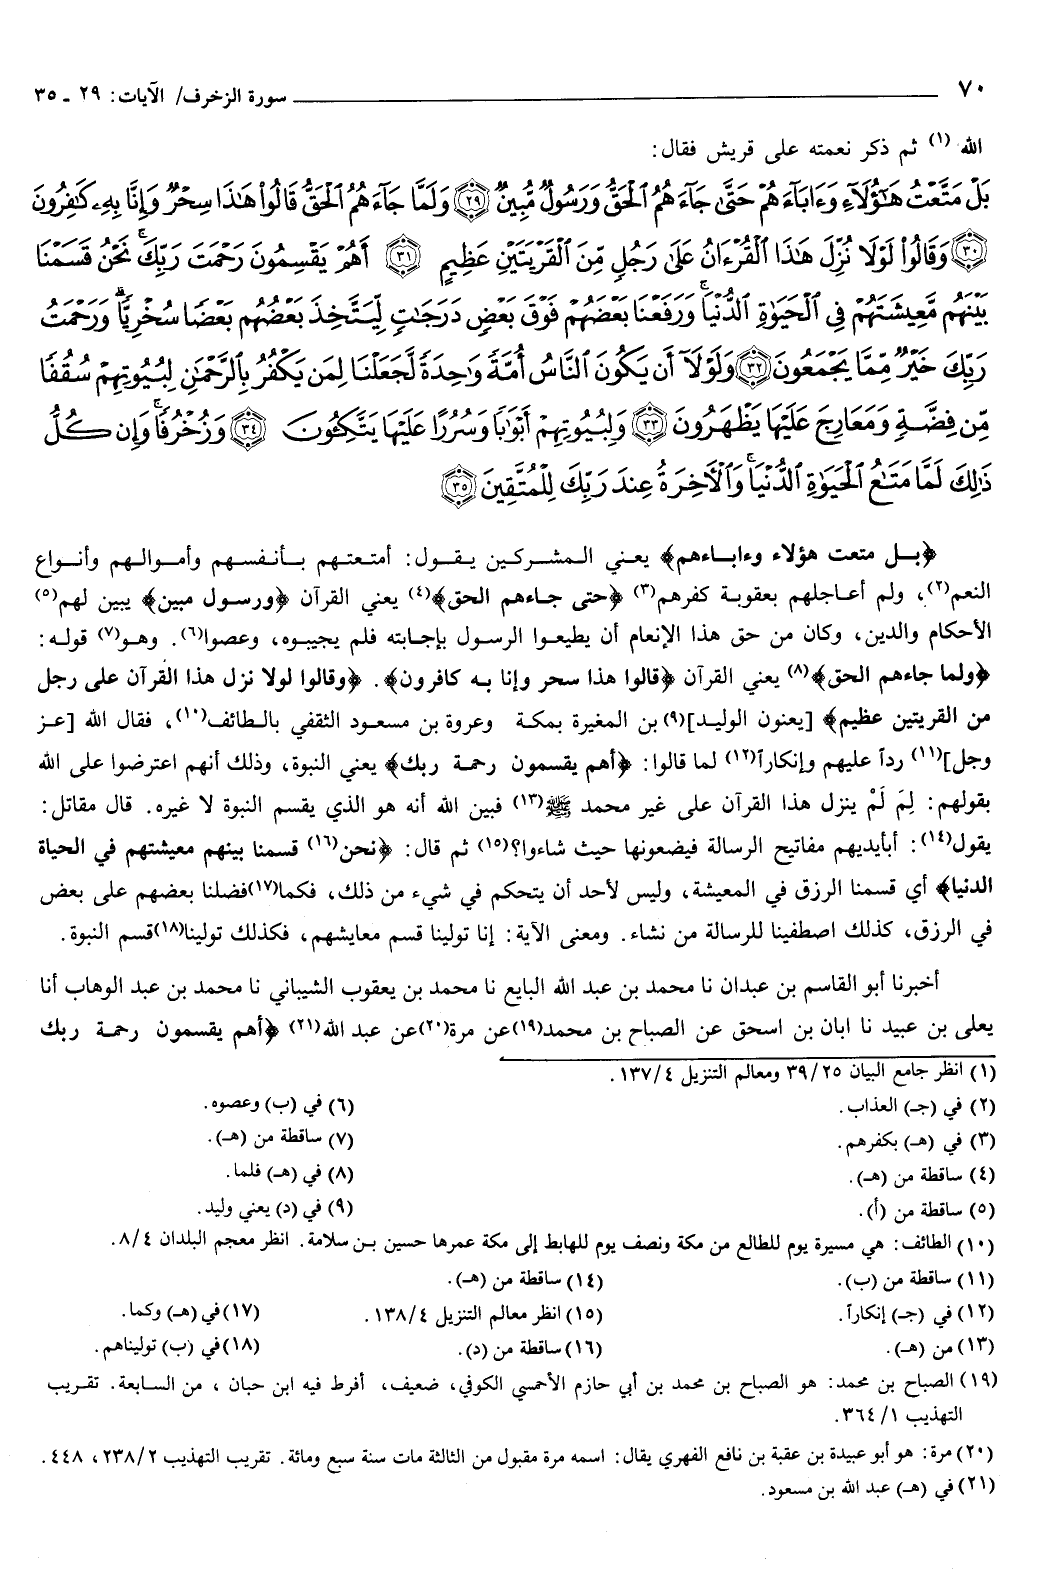 ٧٠ ــــــــــــــــــــــــــــــــــــــــــــــ سورة الزخرف/ الآيات: ٢٩ ـ ٣٥
الله (١) ثم ذكر نعمته على قريش فقال:
بَلْ مَتَّعْتُ هَٰٓؤُلَآءِ وَءَابَآءَهُمْ حَتَّىٰ جَآءَهُمُ ٱلْحَقُّ وَرَسُولٌ مُّبِينٌ ﴿٢٩﴾ وَلَمَّا جَآءَهُمُ ٱلْحَقُّ قَالُوا۟ هَٰذَا سِحْرٌ وَإِنَّا بِهِۦ كَٰفِرُونَ
﴿٣٠﴾ وَقَالُوا۟ لَوْلَا نُزِّلَ هَٰذَا ٱلْقُرْءَانُ عَلَىٰ رَجُلٍ مِّنَ ٱلْقَرْيَتَيْنِ عَظِيمٍ ﴿٣١﴾ أَهُمْ يَقْسِمُونَ رَحْمَتَ رَبِّكَ ۚ نَحْنُ قَسَمْنَا
بَيْنَهُم مَّعِيشَتَهُمْ فِى ٱلْحَيَوٰةِ ٱلدُّنْيَا ۚ وَرَفَعْنَا بَعْضَهُمْ فَوْقَ بَعْضٍ دَرَجَٰتٍ لِّيَتَّخِذَ بَعْضُهُم بَعْضًا سُخْرِيًّا ۗ وَرَحْمَتُ
رَبِّكَ خَيْرٌ مِّمَّا يَجْمَعُونَ ﴿٣٢﴾ وَلَوْلَآ أَن يَكُونَ ٱلنَّاسُ أُمَّةً وَٰحِدَةً لَّجَعَلْنَا لِمَن يَكْفُرُ بِٱلرَّحْمَٰنِ لِبُيُوتِهِمْ سُقُفًا
مِّن فِضَّةٍ وَمَعَارِجَ عَلَيْهَا يَظْهَرُونَ ﴿٣٣﴾ وَلِبُيُوتِهِمْ أَبْوَٰبًا وَسُرُرًا عَلَيْهَا يَتَّكِـُٔونَ ﴿٣٤﴾ وَزُخْرُفًا ۚ وَإِن كُلُّ
ذَٰلِكَ لَمَّا مَتَٰعُ ٱلْحَيَوٰةِ ٱلدُّنْيَا ۚ وَٱلْءَاخِرَةُ عِندَ رَبِّكَ لِلْمُتَّقِينَ ﴿٣٥﴾
﴿بل متعت هؤلاء وءاباءهم﴾ يعني المشركين يقول: أمتعتهم بأنفسهم وأموالهم وأنواع
النعم(٢)، ولم أعاجلهم بعقوبة كفرهم(٣) ﴿حتى جاءهم الحق﴾(٤) يعني القرآن ﴿ورسول مبين﴾ يبين لهم(٥)
الأحكام والدين، وكان من حق هذا الإنعام أن يطيعوا الرسول بإجابته فلم يجيبوه، وعصوا(٦). وهو(٧) قوله:
﴿ولما جاءهم الحق﴾(٨) يعني القرآن ﴿قالوا هذا سحر وإنا به كافرون﴾. ﴿وقالوا لولا نزل هذا القرآن على رجل
من القريتين عظيم﴾ [يعنون الوليد](٩) بن المغيرة بمكة وعروة بن مسعود الثقفي بالطائف(١٠)، فقال الله [عز
وجل](١١) رداً عليهم وإنكاراً(١٢) لما قالوا: ﴿أهم يقسمون رحمة ربك﴾ يعني النبوة، وذلك أنهم اعترضوا على الله
بقولهم: لِمَ لَمْ ينزل هذا القرآن على غير محمد ﷺ(١٣) فبين الله أنه هو الذي يقسم النبوة لا غيره. قال مقاتل:
يقول(١٤): أبأيديهم مفاتيح الرسالة فيضعونها حيث شاءوا؟(١٥) ثم قال: ﴿نحن(١٦) قسمنا بينهم معيشتهم في الحياة
الدنيا﴾ أي قسمنا الرزق في المعيشة، وليس لأحد أن يتحكم في شيء من ذلك، فكما(١٧)فضلنا بعضهم على بعض
في الرزق، كذلك اصطفينا للرسالة من نشاء. ومعنى الآية: إنا تولينا قسم معايشهم، فكذلك تولينا(١٨)قسم النبوة.
أخبرنا أبو القاسم بن عبدان نا محمد بن عبد الله البايع نا محمد بن يعقوب الشيباني نا محمد بن عبد الوهاب أنا
يعلى بن عبيد نا ابان بن اسحق عن الصباح بن محمد(١٩)عن مرة(٢٠)عن عبد الله(٢١) ﴿أهم يقسمون رحمة ربك
(١) انظر جامع البيان ٣٩/٢٥ ومعالم التنزيل ١٣٧/٤.
(٢) في (جـ) العذاب. (٦) في (ب) وعصوه.
(٣) في (هـ) بكفرهم. (٧) ساقطة من (هـ).
(٤) ساقطة من (هـ). (٨) في (هـ) فلما.
(٥) ساقطة من (أ). (٩) في (د) يعني وليد.
(١٠) الطائف: هي مسيرة يوم للطالع من مكة ونصف يوم للهابط إلى مكة عمرها حسين بن سلامة. انظر معجم البلدان ٨/٤.
(١١) ساقطة من (ب). (١٤) ساقطة من (هـ).
(١٢) في (جـ) إنكاراً. (١٥) انظر معالم التنزيل ١٣٨/٤. (١٧) في (هـ) وكما.
(١٣) من (هـ). (١٦) ساقطة من (د). (١٨) في (ب) توليناهم.
(١٩) الصباح بن محمد: هو الصباح بن محمد بن أبي حازم الأحمسي الكوفي، ضعيف، أفرط فيه ابن حبان ، من السابعة. تقريب
التهذيب ٣٦٤/١.
(٢٠) مرة: هو أبو عبيدة بن عقبة بن نافع الفهري يقال: اسمه مرة مقبول من الثالثة مات سنة سبع ومائة. تقريب التهذيب ٢٣٨/٢، ٤٤٨.
(٢١) في (هـ) عبد الله بن مسعود.